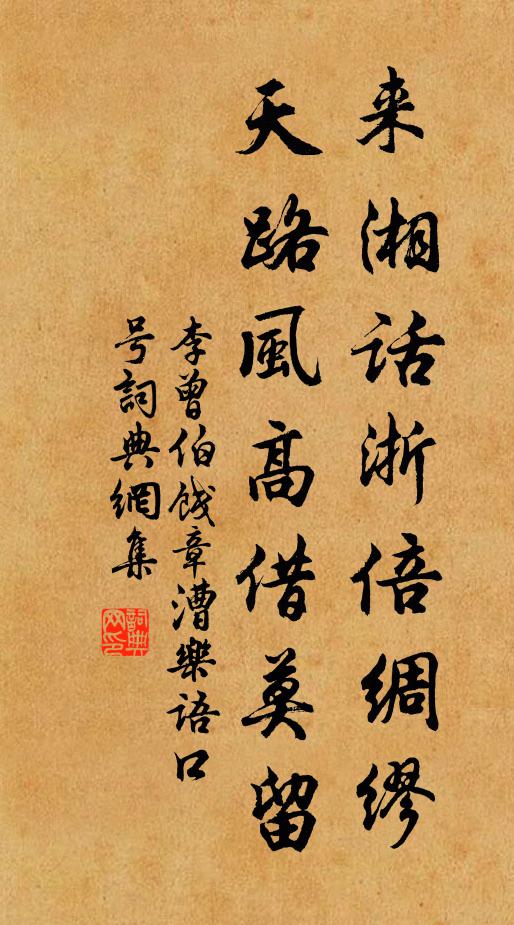 来湘话浙倍绸缪
天路風高借莫留
李曾伯餞章漕樂语口
号詞典網集
詞典网印